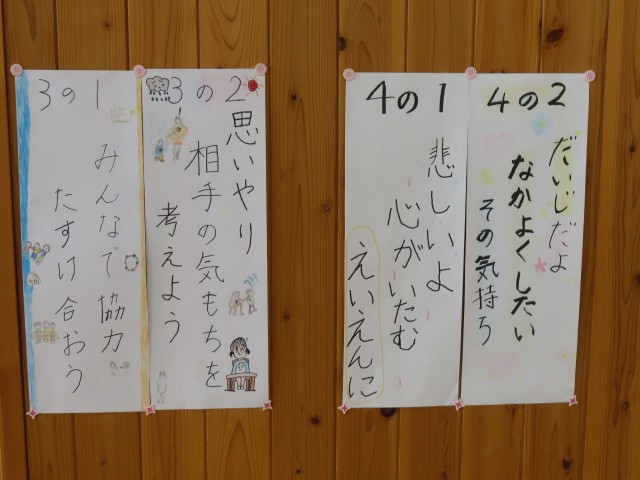 3の1
みんなで協力
たすけ合おう
3の2
思いやり
相手の気もちを
考えよう
4の1
悲しいよ
心がいたむ
えいえんに
4の2
だいじだよ
なかよくしたい
その気持ち